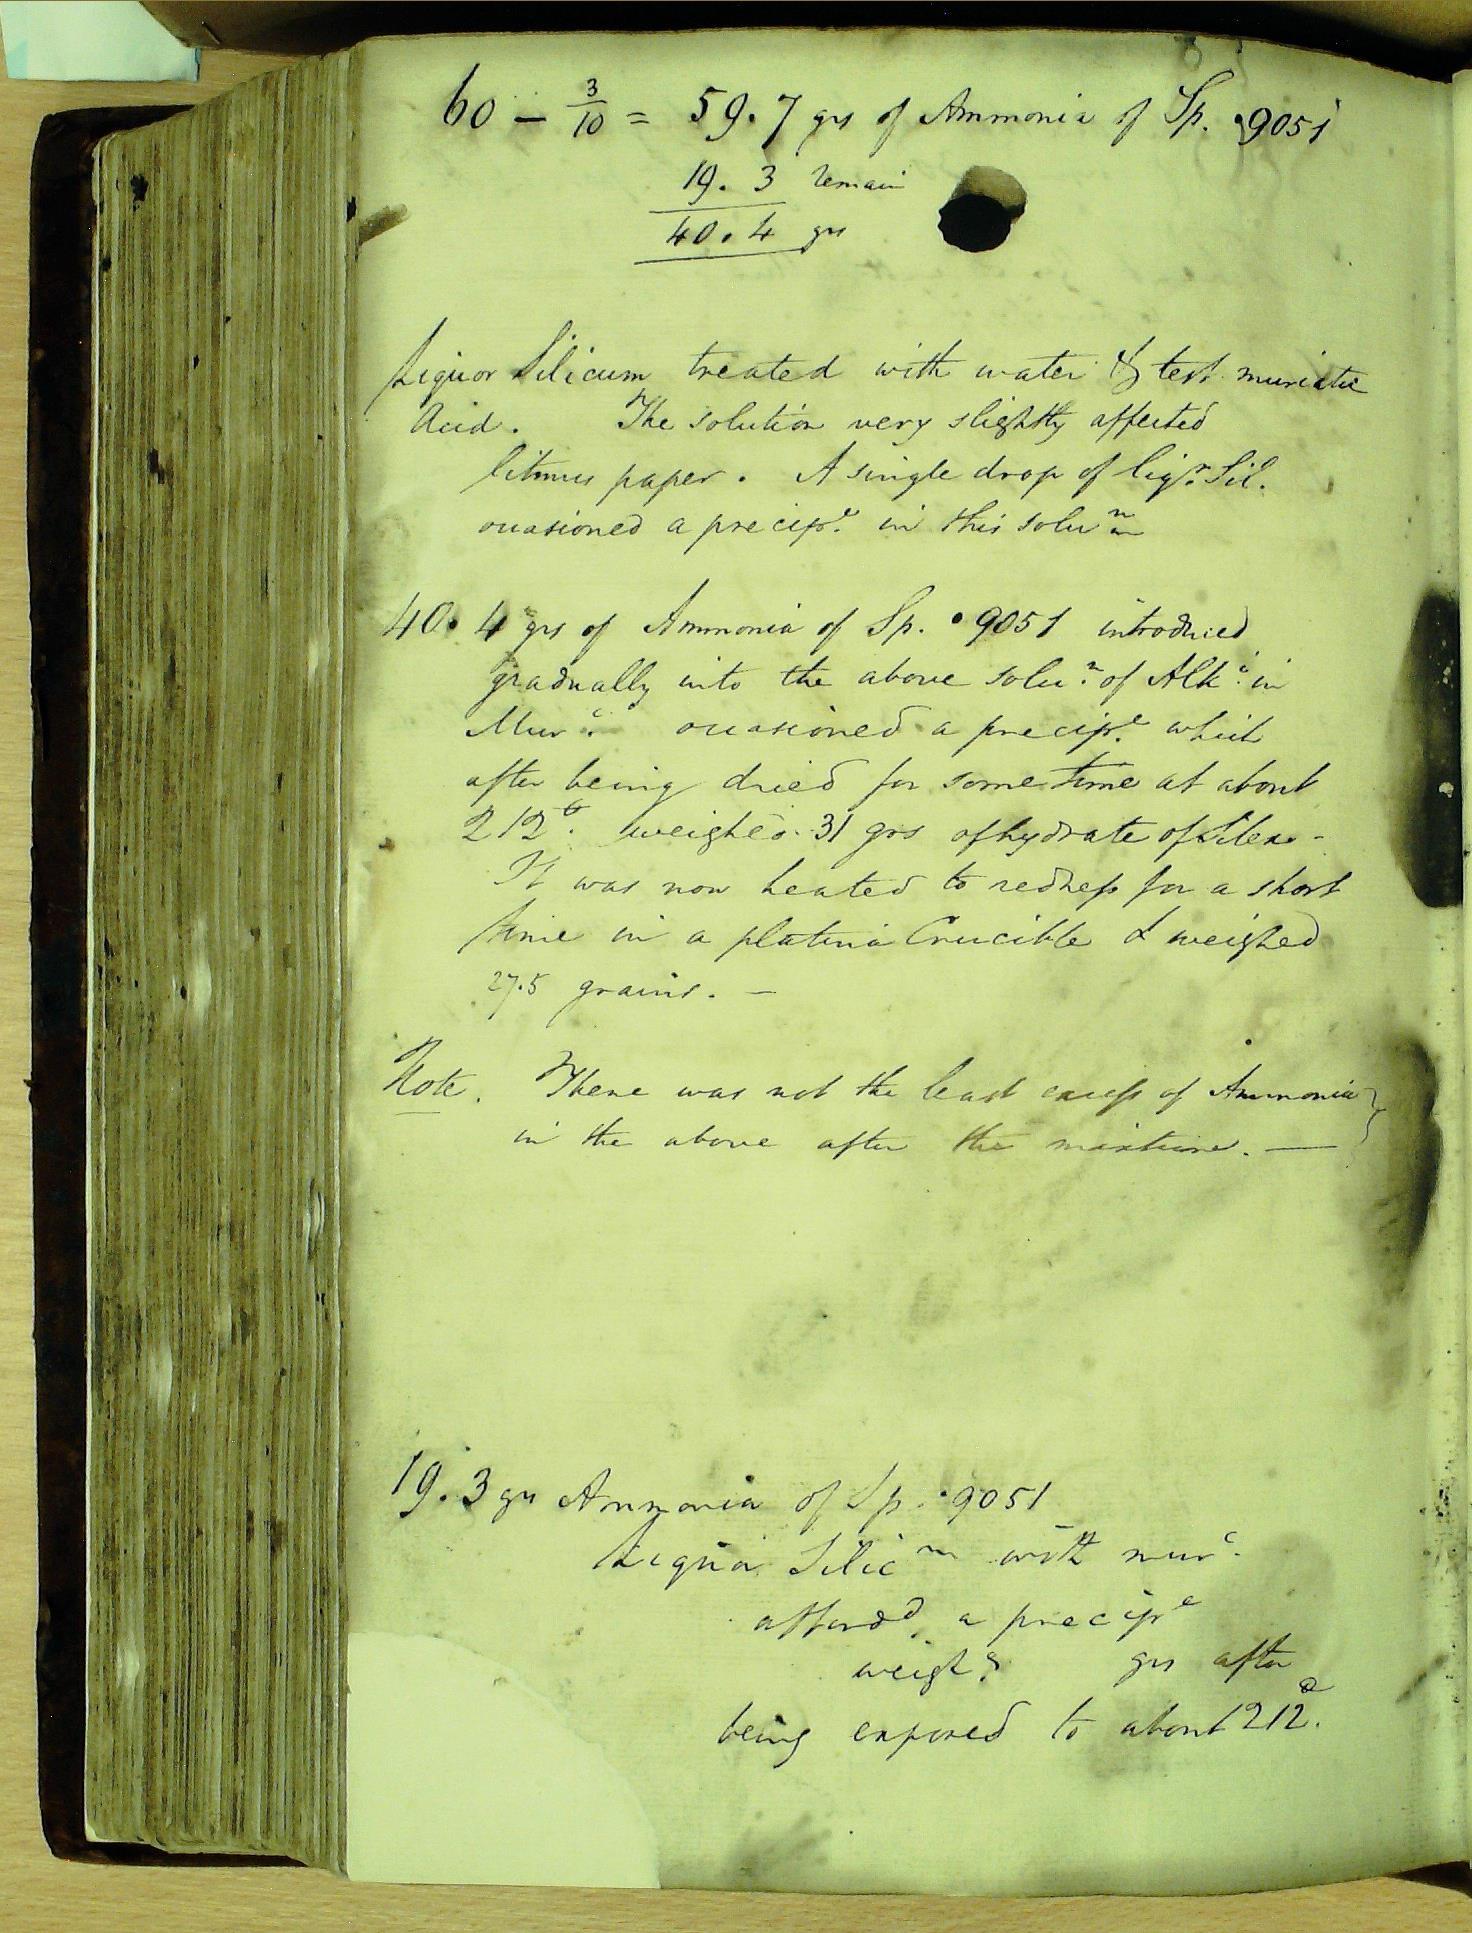 60 - 3/10 = 59.7 grs of Ammonia of Sp. .9051
19.3 remain
40.4 grs
Liquor Silicum treated with water & test muriatic
Acid. The solution very slightly affected
litmus paper. A single drop of liqr. Sil.
occasioned a precipe. in this solun
40.4 grs of Ammonia of Sp. .9051 introduced
gradually into the above solun. of Alki. in
Murc. occasioned a precipe. which
after being dried for some time at about
212°. weighed 31 grs of hydrate of Silex -
It was now heated to redness for a short
time in a platina Crucible & weighed
27.5 grains. -
Note. There was not the least excess of Ammonia
in the above after the mixture. —
19.3 grs Ammonia of Sp. .9051
Liquor Silicm with murc.
affordd a precipe
weighg grs after
being exposed to about 212°.